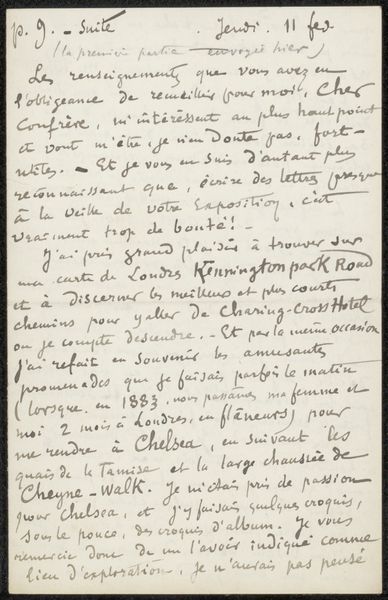 p. 9. - Suite . Jeudi. 11 fev.
(la première partie envoyée hier)
Les renseignements que vous avez eu
l'obligeance de recueillir pour moi, Cher
Confrère, m'intéressent au plus haut point
et vont m'être, je n'en doute pas, fort-
utiles. - Et je vous en suis d'autant plus
reconnaissant que, écrire des lettres presque
à la veille de votre Exposition, c'est
vraiment trop de bonté! -
J'ai pris grand plaisir à trouver sur
ma carte de Londres Kennington park Road
et à discerner les meilleurs et plus courts
chemins pour y aller de Charing-Cross Hotel
ou je compte descendre. - Et par la même occasion
j'ai refait en souvenir les amusantes
promenades que je faisais parfois le matin
(lorsque, en 1883, nous passâmes ma femme et
moi 2 mois à Londres, en flâneurs) pour
me rendre à Chelsea, en suivant les
quais de la Tamise et la large chaussée de
Cheyne-Walk. Je m'étais pris de passion
pour Chelsea, et j'y faisais quelques croquis,
sous le pouce, des croquis d'album. Je vous
remercie donc de me l'avoir indiqué comme
lieu d'exploration, je n'aurais pas pensé